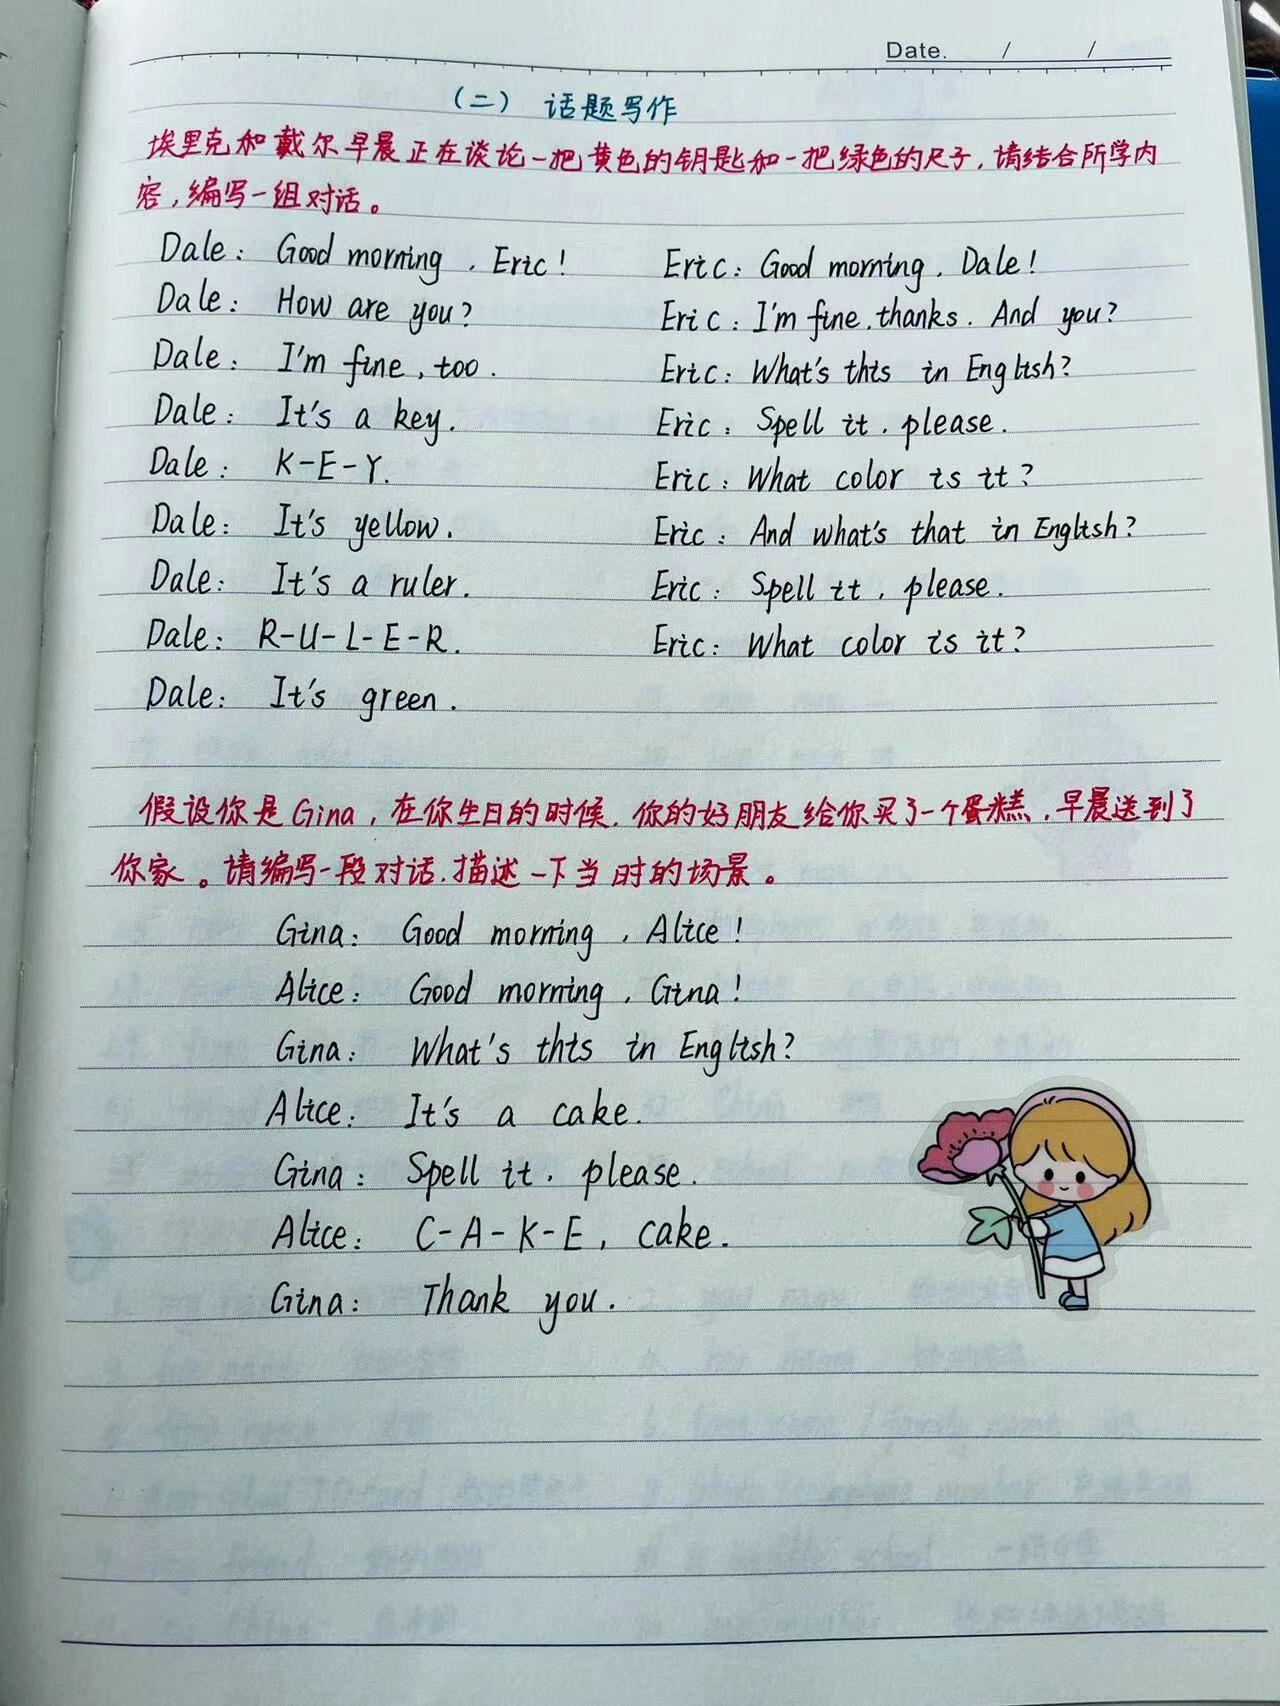 Date. / /
（二） 话题写作
埃里克和戴尔早晨正在谈论一把黄色的钥匙和一把绿色的尺子，请结合所学内
容，编写一组对话。
Dale: Good morning, Eric! Eric: Good morning, Dale!
Dale: How are you? Eric: I'm fine, thanks. And you?
Dale: I'm fine, too. Eric: What's this in English?
Dale: It's a key. Eric: Spell it, please.
Dale: K-E-Y. Eric: What color is it?
Dale: It's yellow. Eric: And what's that in English?
Dale: It's a ruler. Eric: Spell it, please.
Dale: R-U-L-E-R. Eric: What color is it?
Dale: It's green.
假设你是Gina，在你生日的时候，你的好朋友给你买了一个蛋糕，早晨送到了
你家。请编写一段对话，描述一下当时的场景。
Gina: Good morning, Alice!
Alice: Good morning, Gina!
Gina: What's this in English?
Alice: It's a cake.
Gina: Spell it, please.
Alice: C-A-K-E, cake.
Gina: Thank you.